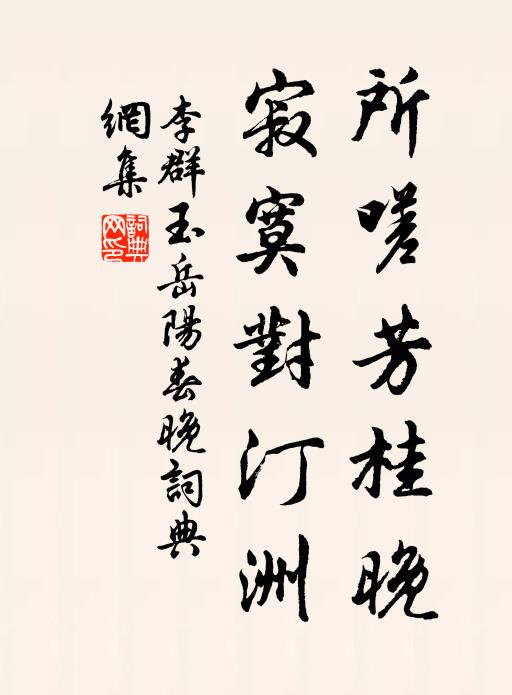 所嗟芳桂晚
寂寞對汀洲
李群玉岳陽春晚詞典
網集
詞典網印